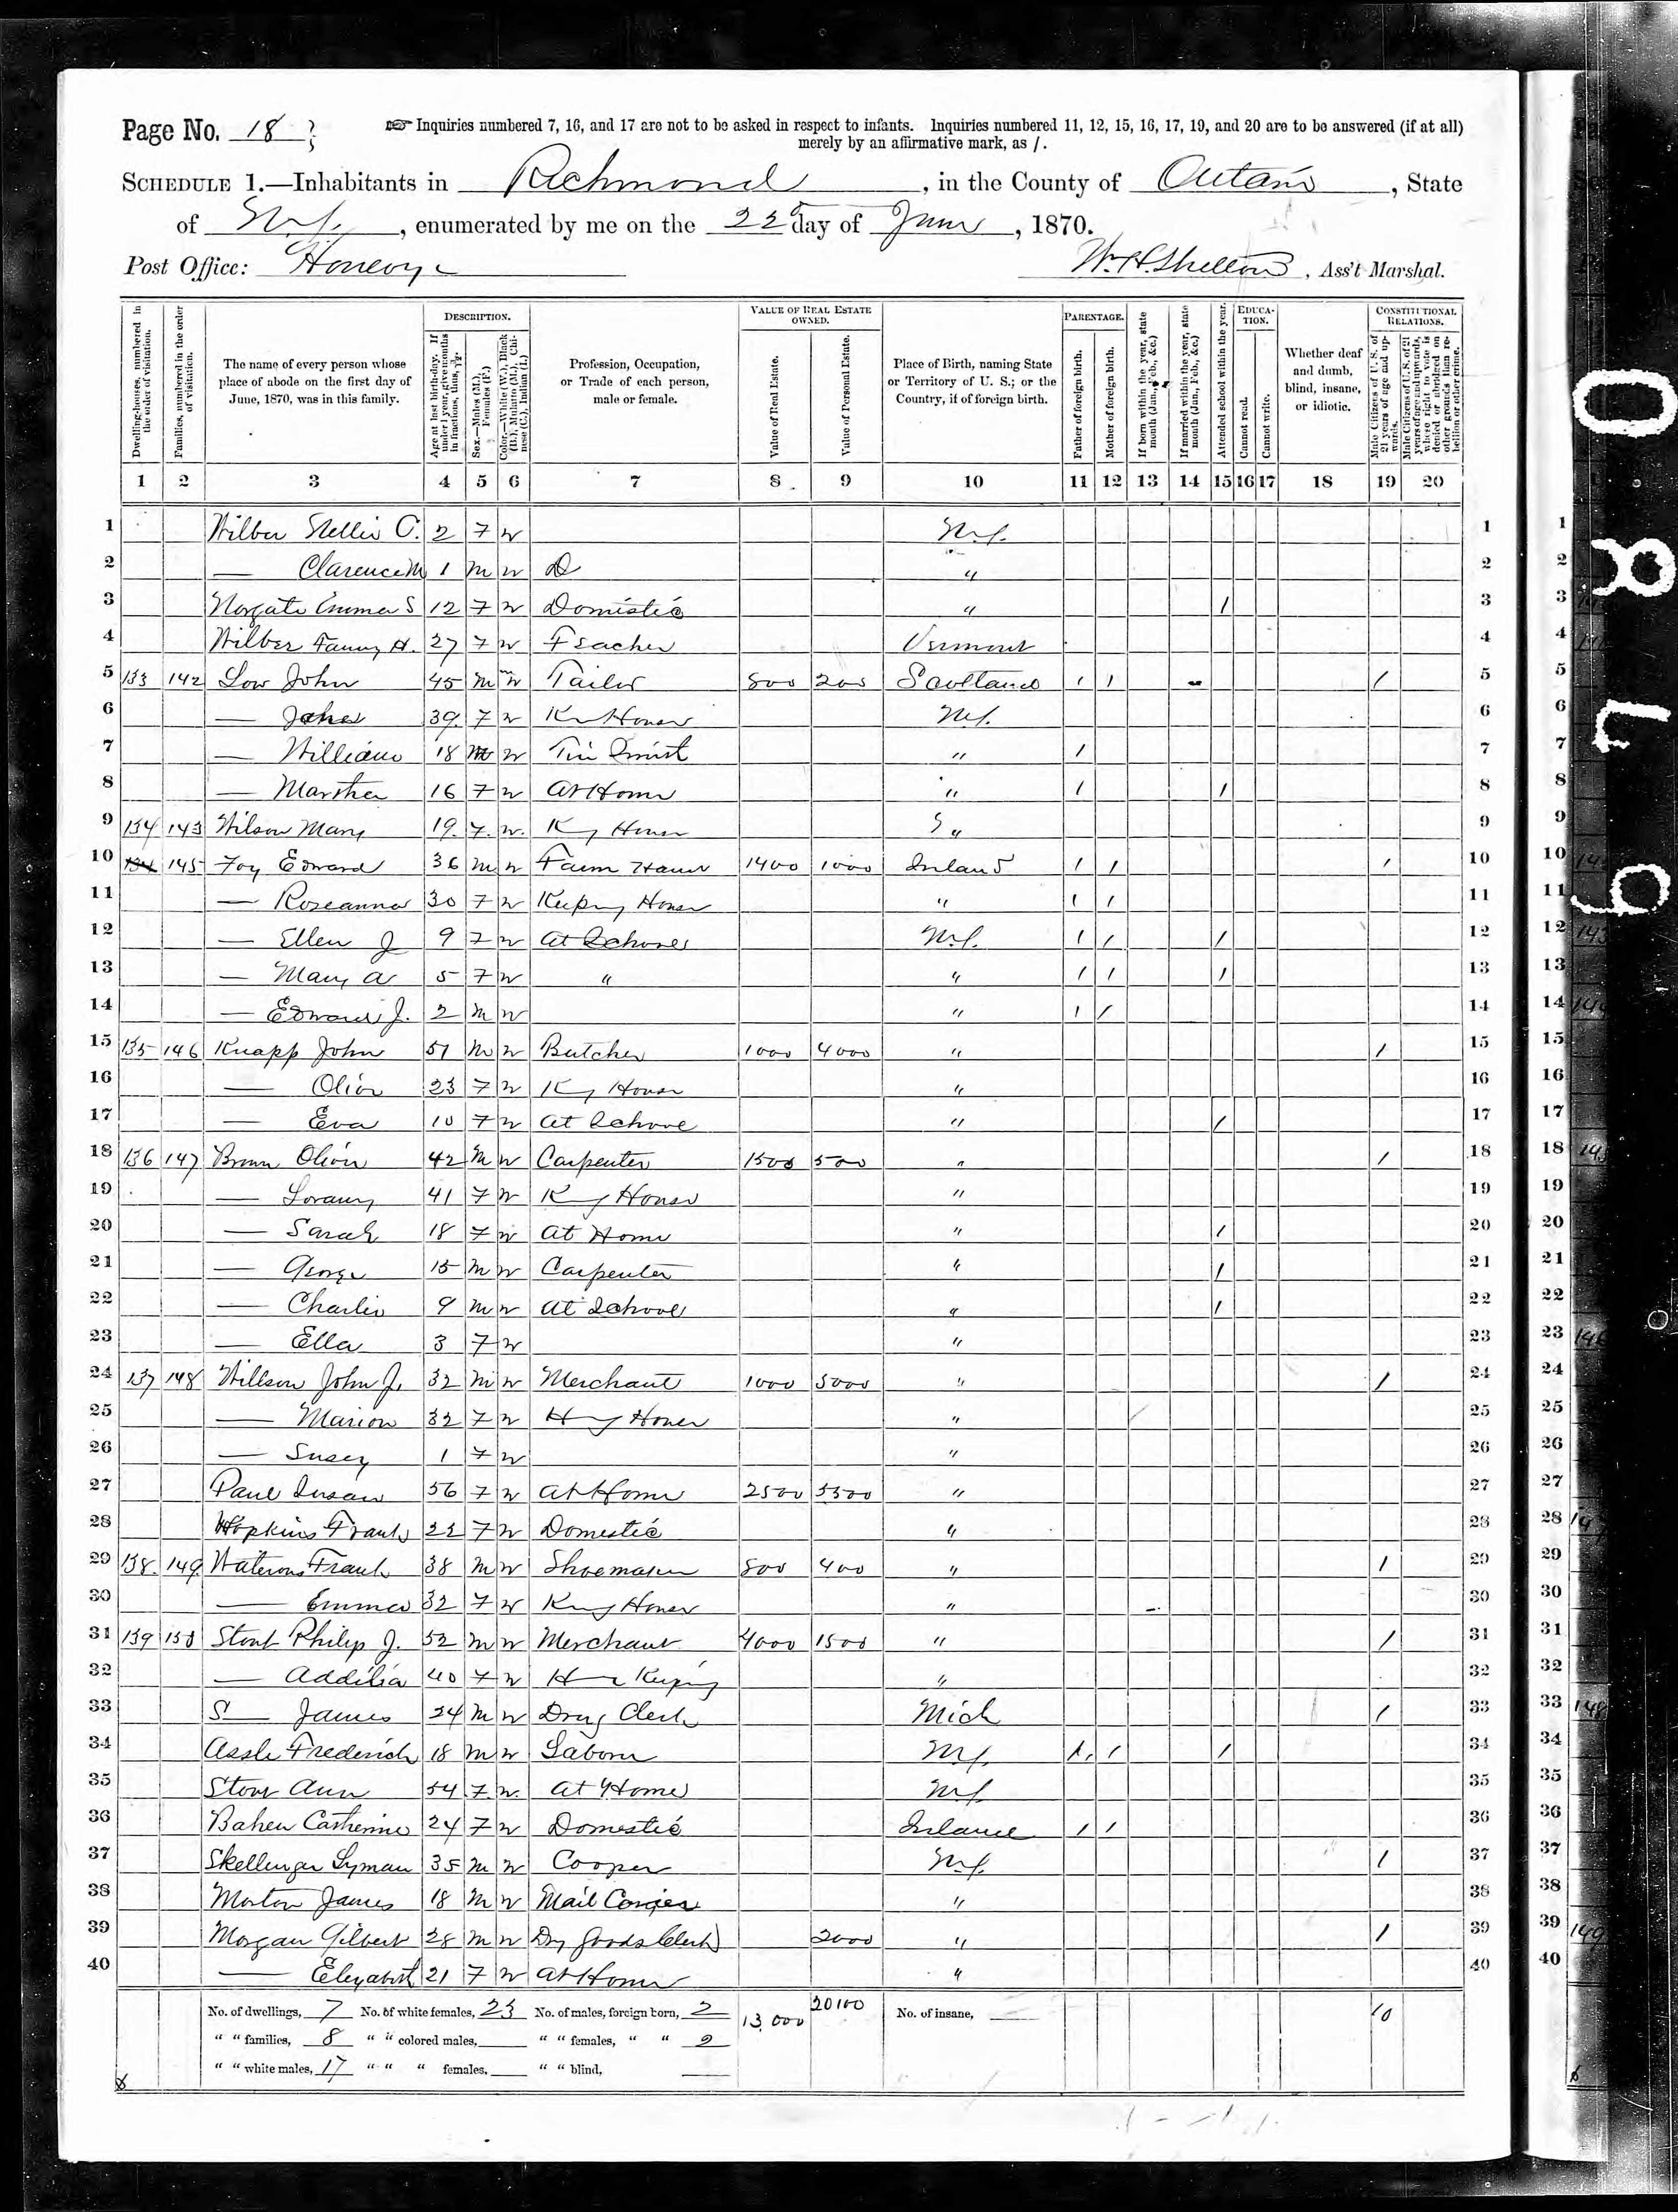 Page No. 18
Inquiries numbered 7, 16, and 17 are not to be asked in respect to infants. Inquiries numbered 11, 12, 15, 16, 17, 19, and 20 are to be answered (if at all)
merely by an affirmative mark, as /.
SCHEDULE 1.—Inhabitants in Richmond, in the County of Ontario, State
of N.Y., enumerated by me on the 22d day of June, 1870.
Post Office: Honeoye
Wm H. Shelton, Ass't Marshal.
Dwelling-houses, numbered in the order of visitation.
Families, numbered in the order of visitation.
The name of every person whose place of abode on the first day of June, 1870, was in this family.
DESCRIPTION.
Age at last birth-day. If under 1 year, give months in fractions, thus, 3/12.
Sex.—Males (M.), Females (F.)
Color.—White (W.), Black (B.), Mulatto (M.), Chinese (C.), Indian (I.)
Profession, Occupation, or Trade of each person, male or female.
VALUE OF REAL ESTATE OWNED.
Value of Real Estate.
Value of Personal Estate.
Place of Birth, naming State or Territory of U. S.; or the Country, if of foreign birth.
PARENTAGE.
Father of foreign birth.
Mother of foreign birth.
If born within the year, state month (Jan., Feb., &c.)
If married within the year, state month (Jan., Feb., &c.)
Attended school within the year.
EDUCATION.
Cannot read.
Cannot write.
Whether deaf and dumb, blind, insane, or idiotic.
CONSTITUTIONAL RELATIONS.
Male Citizens of U. S. of 21 years of age and upwards.
Male Citizens of U. S. of 21 years of age and upwards, where right to vote is denied or abridged on other grounds than rebellion or other crime.
1 2 3 4 5 6 7 8 9 10 11 12 13 14 15 16 17 18 19 20
1 Wilber Nellie C. 2 F W N.Y. 1
2 — Clarence M 1 M W " 2
3 Norgate Emma S 12 F W Domestic " / 3
4 Wilber Fanny H. 27 F W Teacher Vermont 4
5 133 142 Low John 45 M W Tailor 800 200 Scotland / / / 5
6 — 39 F W K House N.Y. 6
7 — William 18 M W Tin Smith " / 7
8 — Martha 16 F W At Home " / / 8
9 134 143 Wilson Mary 19 F W. Kg House " 9
10 145 Foy Edward 36 M W Farm Hand 1400 1000 Ireland / / / 10
11 — Roseanna 30 F W Keeping House " / / 11
12 — Ellen J 9 F W At School N.Y. / / / 12
13 — Mary A 5 F W " " / / / 13
14 — Edward J. 2 M W " / / 14
15 135 146 Knapp John 51 M W Butcher 1000 4000 " / 15
16 — Olive 23 F W Kg House " 16
17 — Eva 10 F W At School " / 17
18 136 147 Brown Olive 42 M W Carpenter 1500 500 " / 18
19 — Lorany 41 F W Kg House " 19
20 — Sarah 18 F W At Home " / 20
21 — George 15 M W Carpenter " / 21
22 — Charlie 9 M W At School " / 22
23 — Ella 3 F W " 23
24 137 148 Willson John J. 32 M W Merchant 1000 5000 " / 24
25 — Marion 32 F W Kg House " 25
26 — Susey 1 F W " 26
27 Paul Susan 56 F W At Home 2500 5500 " 27
28 Hopkins Frank 22 F W Domestic " 28
29 138 149 Waterous Frank 38 M W Shoemaker 800 400 " / 29
30 — Emma 32 F W Kng House " 30
31 139 150 Stout Philip J. 52 M W Merchant 4000 1500 " / 31
32 — Addilia 40 F W H Keeping " 32
33 S — James 24 M W Drug Clerk Mich / 33
34 Frederick 18 M W Labour N.Y. / / / 34
35 Stout Ann 54 F W. At Home N.Y. 35
36 Bahen Catherine 24 F W Domestic Ireland / / 36
37 Skellenger Lyman 35 M W Cooper N.Y. / 37
38 Morton James 18 M W Mail Carrier " 38
39 Morgan Gilbert 28 M W Dry Goods Clerk 2000 " / 39
40 — Elizabeth 21 F W At Home " 40
No. of dwellings, 7 No. of white females, 23 No. of males, foreign born, 2 13,000 20100 No. of insane, 10
" " families, 8 " " colored males, " " females, " " 2
" " white males, 17 " " " females, " " blind,
0870